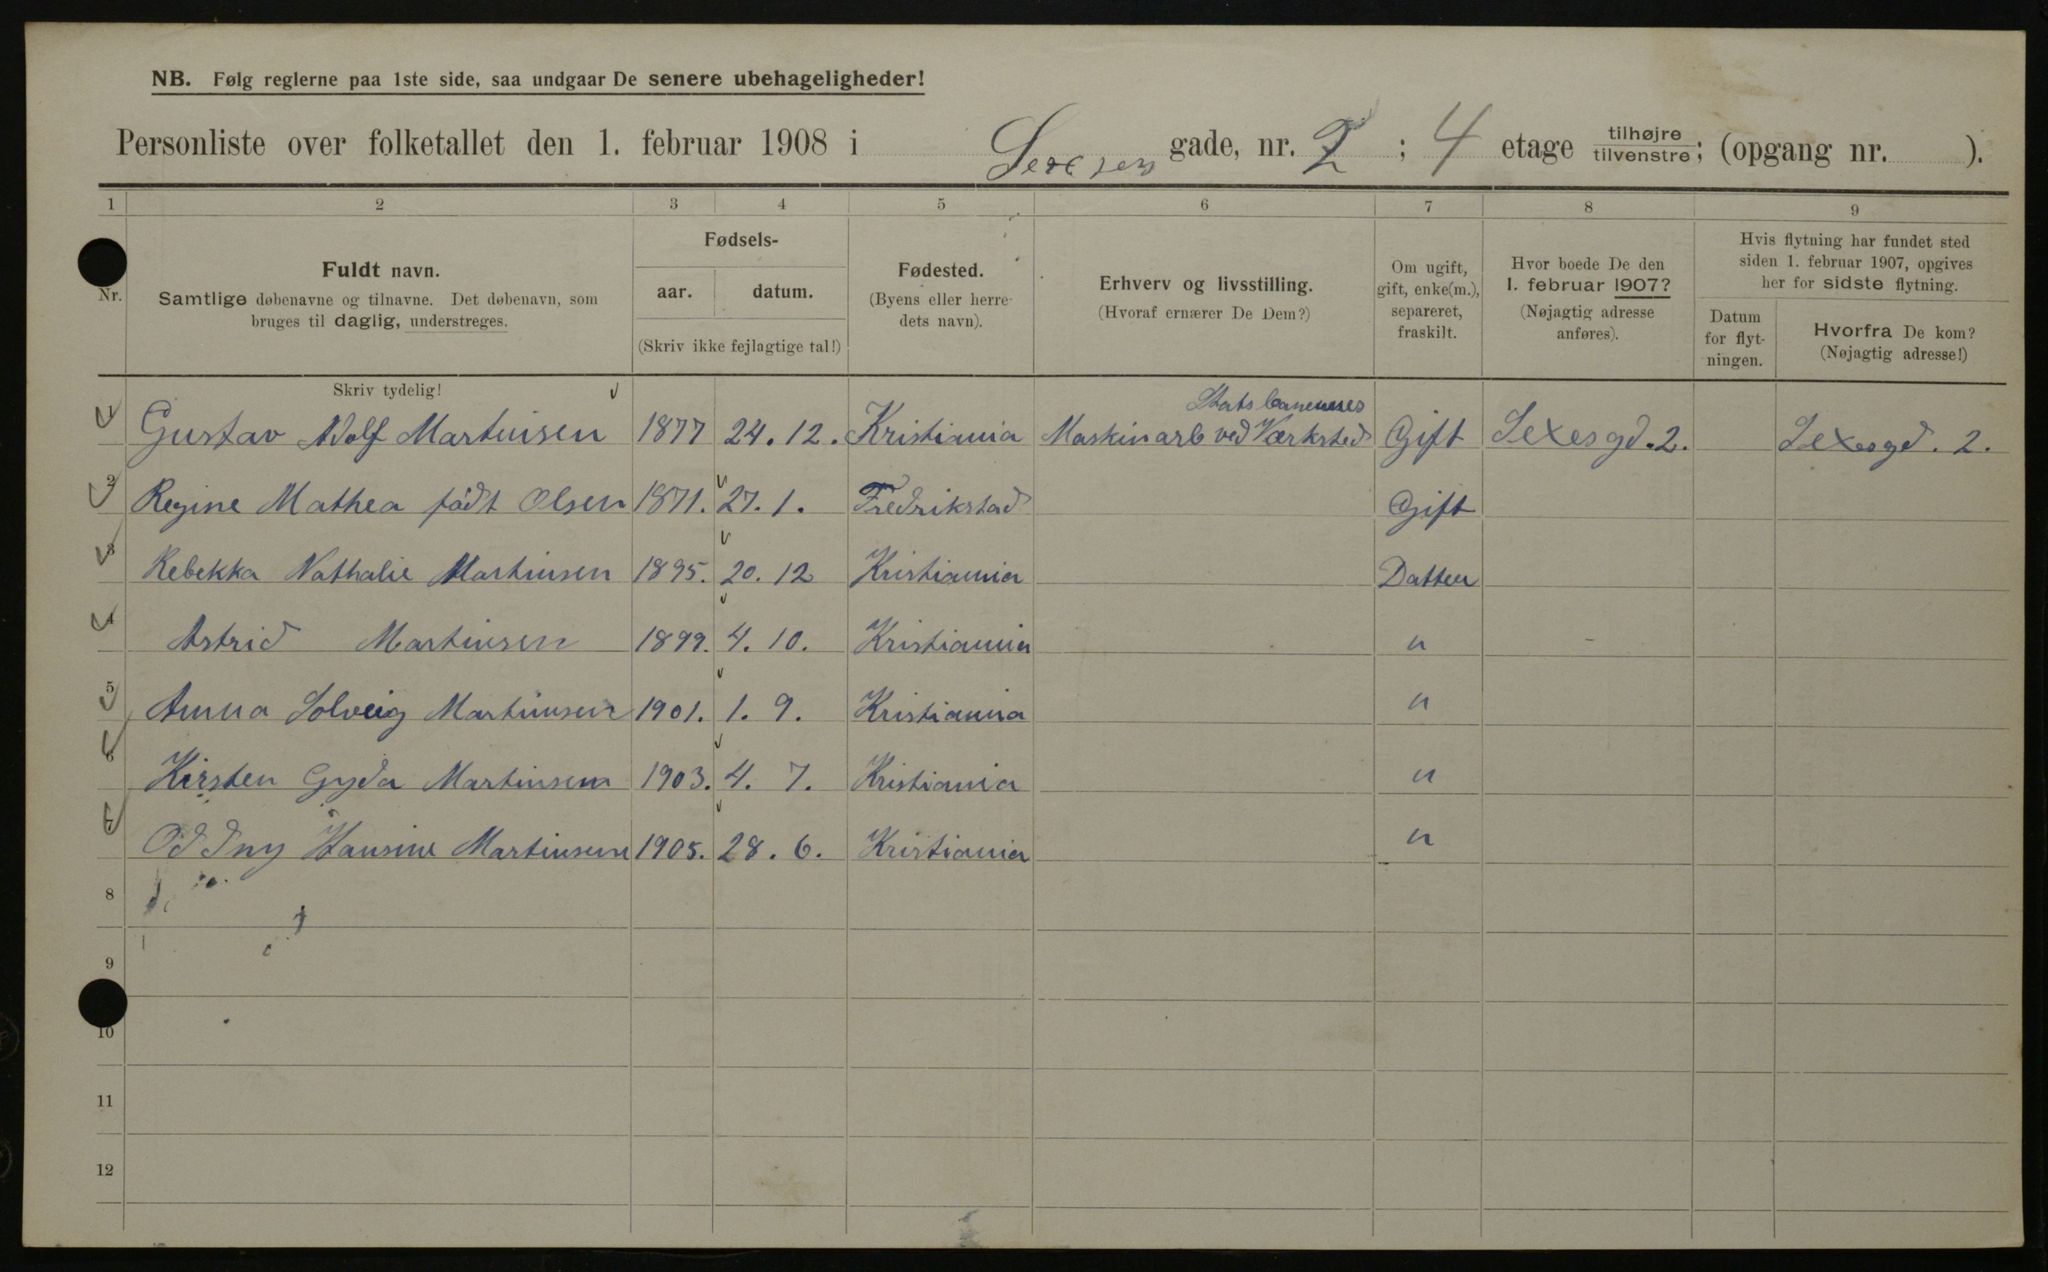 NB. Følg reglerne paa 1ste side, saa undgaar De senere ubehageligheder!
Personliste over folketallet den 1. februar 1908 i Sexesgade, nr. 2; 4 etage tilhøjre/tilvenstre; (opgang nr. ).
1 2 3 4 5 6 7 8 9
Nr.
Fuldt navn.
Samtlige døbenavne og tilnavne. Det døbenavn, som
bruges til daglig, understreges.
Fødsels-
aar. datum.
(Skriv ikke fejlagtige tal!)
Fødested.
(Byens eller herre-
dets navn).
Erhverv og livsstilling.
(Hvoraf ernærer De Dem?)
Om ugift,
gift, enke(m.),
separeret,
fraskilt.
Hvor boede De den
1. februar 1907?
(Nøjagtig adresse
anføres).
Hvis flytning har fundet sted
siden 1. februar 1907, opgives
her for sidste flytning.
Datum
for flyt-
ningen.
Hvorfra De kom?
(Nøjagtig adresse!)
Skriv tydelig!
Statsbanernes
1 Gustav Adolf Martinsen 1877 24. 12. Kristiania Maskinarb ved Værksted Gift Sexesgd. 2. Sexesgd. 2.
2 Regine Mathea født Olsen 1871. 27. 1. Fredrikstad Gift
3 Rebekka Nathalie Martinsen 1895. 20. 12 Kristiania Datter
4 Astrid Martinsen 1899. 4. 10. Kristiania "
5 Anna Solveig Martinsen 1901. 1. 9. Kristiania "
6 Kirsten Gyda Martinsen 1903. 4. 7. Kristiania "
7 Oddny Hansine Martinsen 1905. 28. 6. Kristiania "
8
9
10
11
12